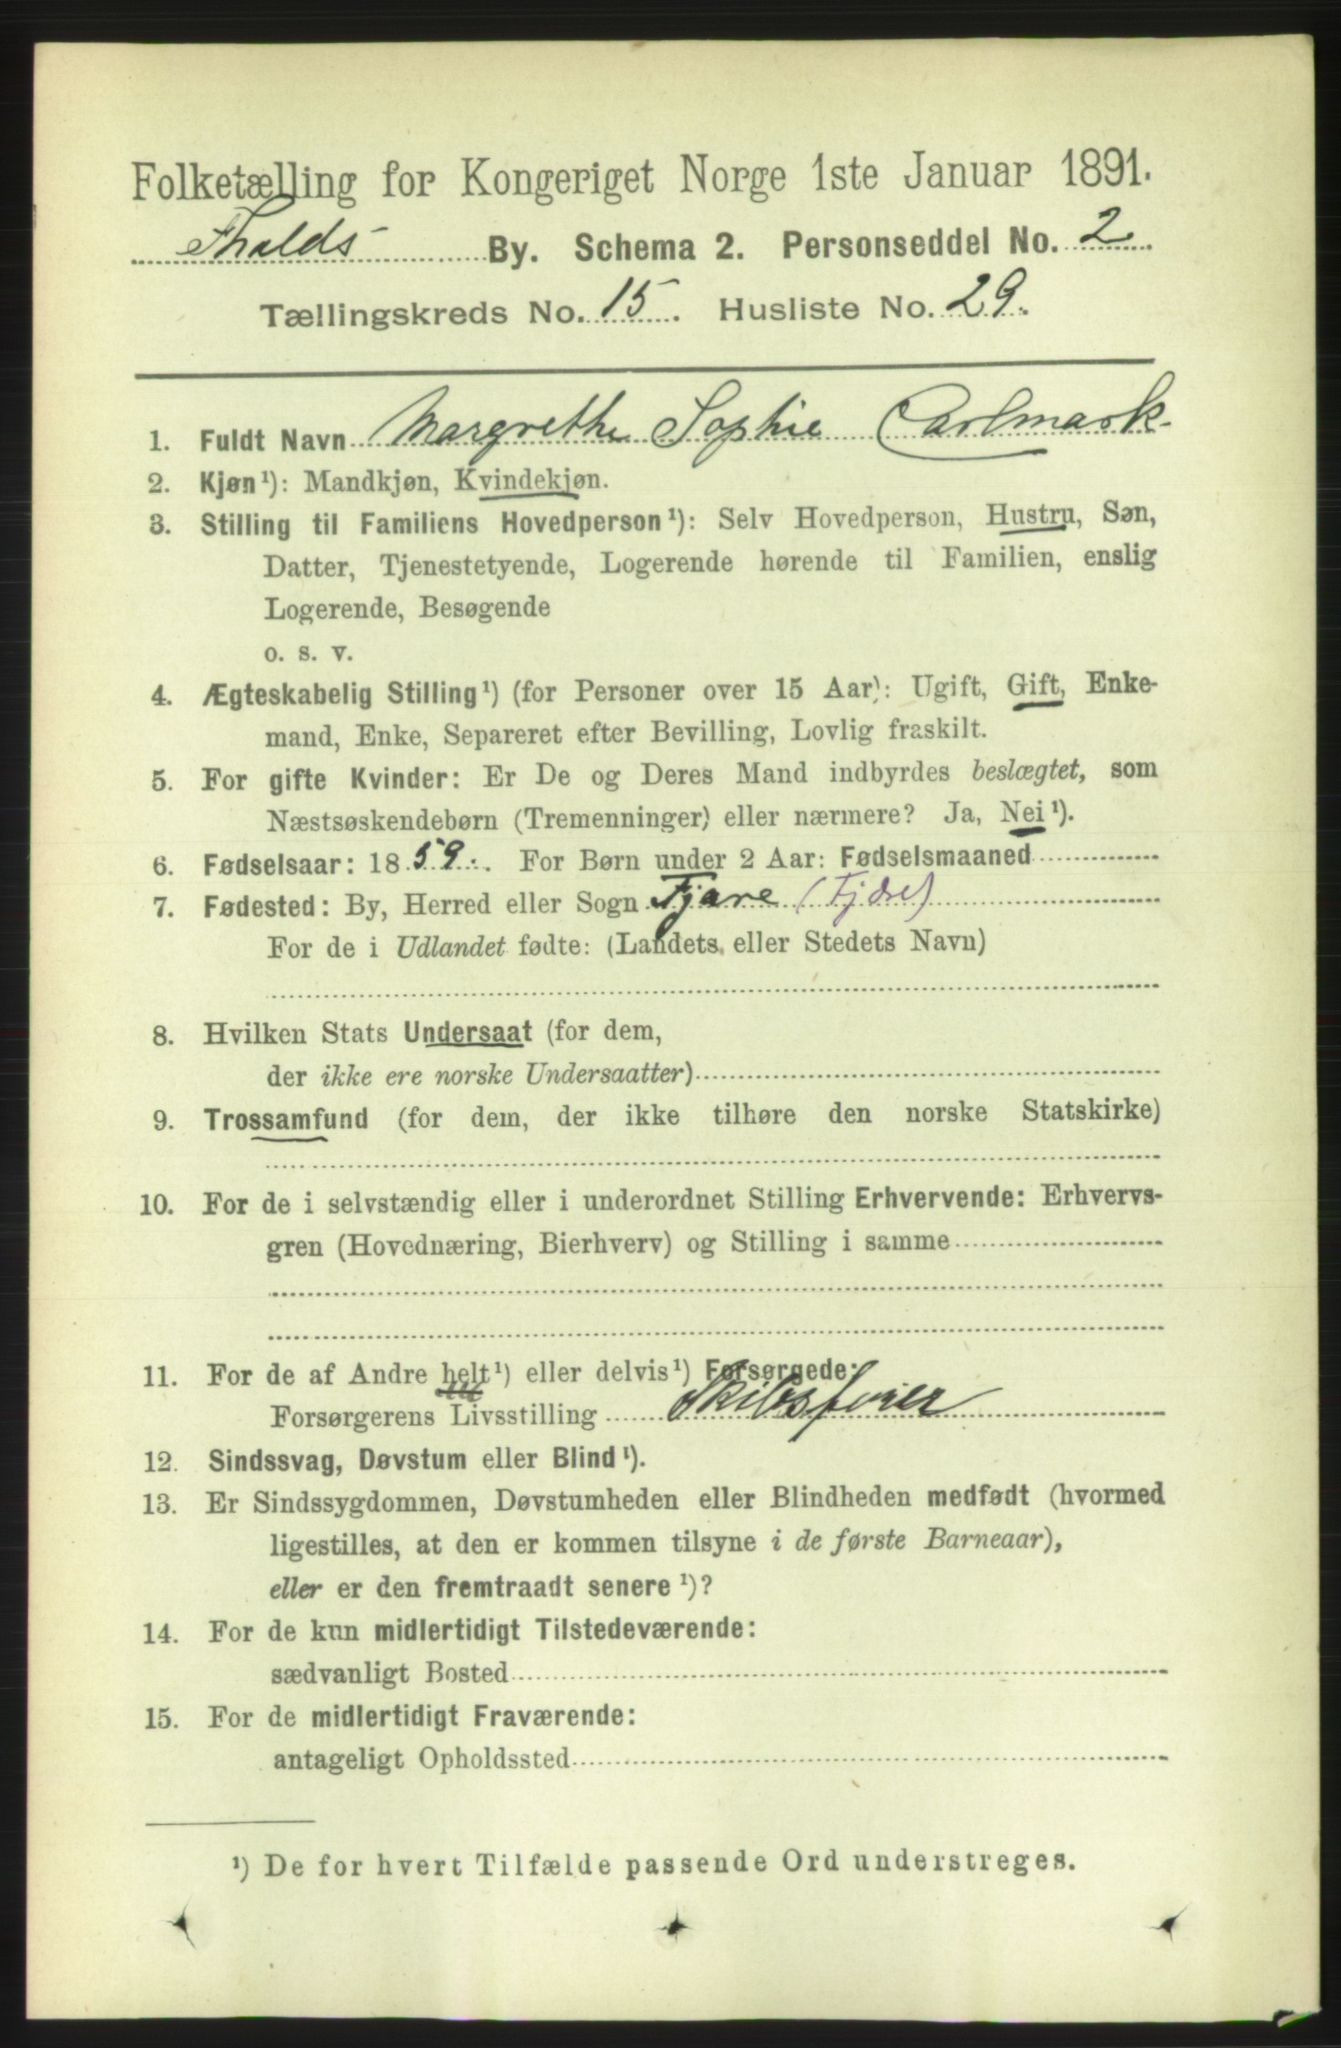 Folketælling for Kongeriget Norge 1ste Januar 1891.
Fhalds By. Schema 2. Personseddel No. 2
Tællingskreds No. 15. Husliste No. 29.
1. Fuldt Navn Margrethe Sophie Carlmark
2. Kjøn¹): Mandkjøn, Kvindekjøn.
3. Stilling til Familiens Hovedperson¹): Selv Hovedperson, Hustru, Søn,
Datter, Tjenestetyende, Logerende hørende til Familien, enslig
Logerende, Besøgende
o. s. v.
4. Ægteskabelig Stilling¹) (for Personer over 15 Aar): Ugift, Gift, Enke-
mand, Enke, Separeret efter Bevilling, Lovlig fraskilt.
5. For gifte Kvinder: Er De og Deres Mand indbyrdes beslægtet, som
Næstsøskendebørn (Tremenninger) eller nærmere? Ja, Nei¹).
6. Fødselsaar: 1859. For Børn under 2 Aar: Fødselsmaaned
7. Fødested: By, Herred eller Sogn Fjære (Fjære)
For de i Udlandet fødte: (Landets eller Stedets Navn)
8. Hvilken Stats Undersaat (for dem,
der ikke ere norske Undersaatter)
9. Trossamfund (for dem, der ikke tilhøre den norske Statskirke)
10. For de i selvstændig eller i underordnet Stilling Erhvervende: Erhvervs-
gren (Hovednæring, Bierhverv) og Stilling i samme
11. For de af Andre helt¹) eller delvis¹) Forsørgede:
Forsørgerens Livsstilling Skibsfører
12. Sindssvag, Døvstum eller Blind¹).
13. Er Sindssygdommen, Døvstumheden eller Blindheden medfødt (hvormed
ligestilles, at den er kommen tilsyne i de første Barneaar),
eller er den fremtraadt senere¹)?
14. For de kun midlertidigt Tilstedeværende:
sædvanligt Bosted
15. For de midlertidigt Fraværende:
antageligt Opholdssted
¹) De for hvert Tilfælde passende Ord understreges.